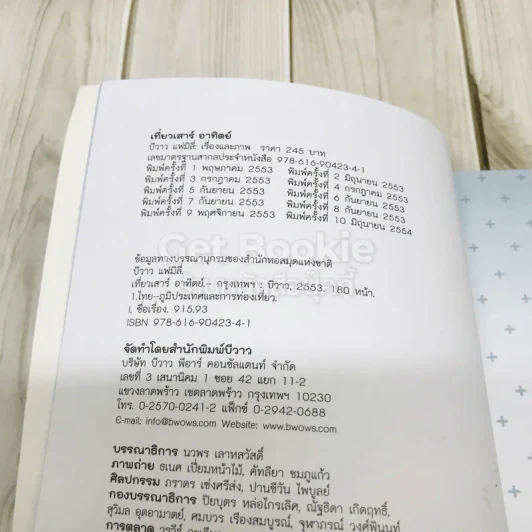 เที่ยวเสาร์ อาทิตย์
บีวาว แฟมิลี่ เรื่องและภาพ ราคา 245 บาท
เลขมาตรฐานสากลประจำหนังสือ 978-616-90423-4-1
พิมพ์ครั้งที่ 1 พฤษภาคม 2553 พิมพ์ครั้งที่ 2 มิถุนายน 2553
พิมพ์ครั้งที่ 3 กรกฎาคม 2553 พิมพ์ครั้งที่ 4 กรกฎาคม 2553
พิมพ์ครั้งที่ 5 กันยายน 2553 พิมพ์ครั้งที่ 6 กันยายน 2553
พิมพ์ครั้งที่ 7 กันยายน 2553 พิมพ์ครั้งที่ 8 กันยายน 2553
พิมพ์ครั้งที่ 9 พฤศจิกายน 2553 พิมพ์ครั้งที่ 10 มิถุนายน 2554
Get Bookie
ข้อมูลทางบรรณานุกรมของสำนักหอสมุดแห่งชาติ
บีวาว แฟมิลี่.
เที่ยวเสาร์ อาทิตย์.- กรุงเทพฯ : บีวาว, 2553. 180 หน้า.
1.ไทย--ภูมิประเทศและการท่องเที่ยว.
I. ชื่อเรื่อง. 915.93
ISBN 978-616-90423-4-1
จัดทำโดยสำนักพิมพ์บีวาว
บริษัท บีวาว พีอาร์ คอนซัลแตนท์ จำกัด
เลขที่ 3 เสนานิคม 1 ซอย 42 แยก 11-2
แขวงลาดพร้าว เขตลาดพร้าว กรุงเทพฯ 10230
โทร. 0-2570-0241-2 แฟ็กซ์ 0-2942-0688
E-mail: info@bwows.com Website: www.bwows.com
บรรณาธิการ นวพร เลาหสวัสดิ์
ภาพถ่าย ธเนศ เปี่ยมหน้าไม้, คัทลียา ชมภูแก้ว
ศิลปกรรม ภราดร เข่งศรีส่ง, ปานชีวัน ไพบูลย์
กองบรรณาธิการ ปิยบุตร หล่อไกรเลิศ, ณัฐธิดา เกิดฤทธิ์,
สุวิมล อุตอามาตย์, คมบวร เรืองสมบูรณ์, จุฬาภรณ์ วงศ์พินันท์
การตลาด